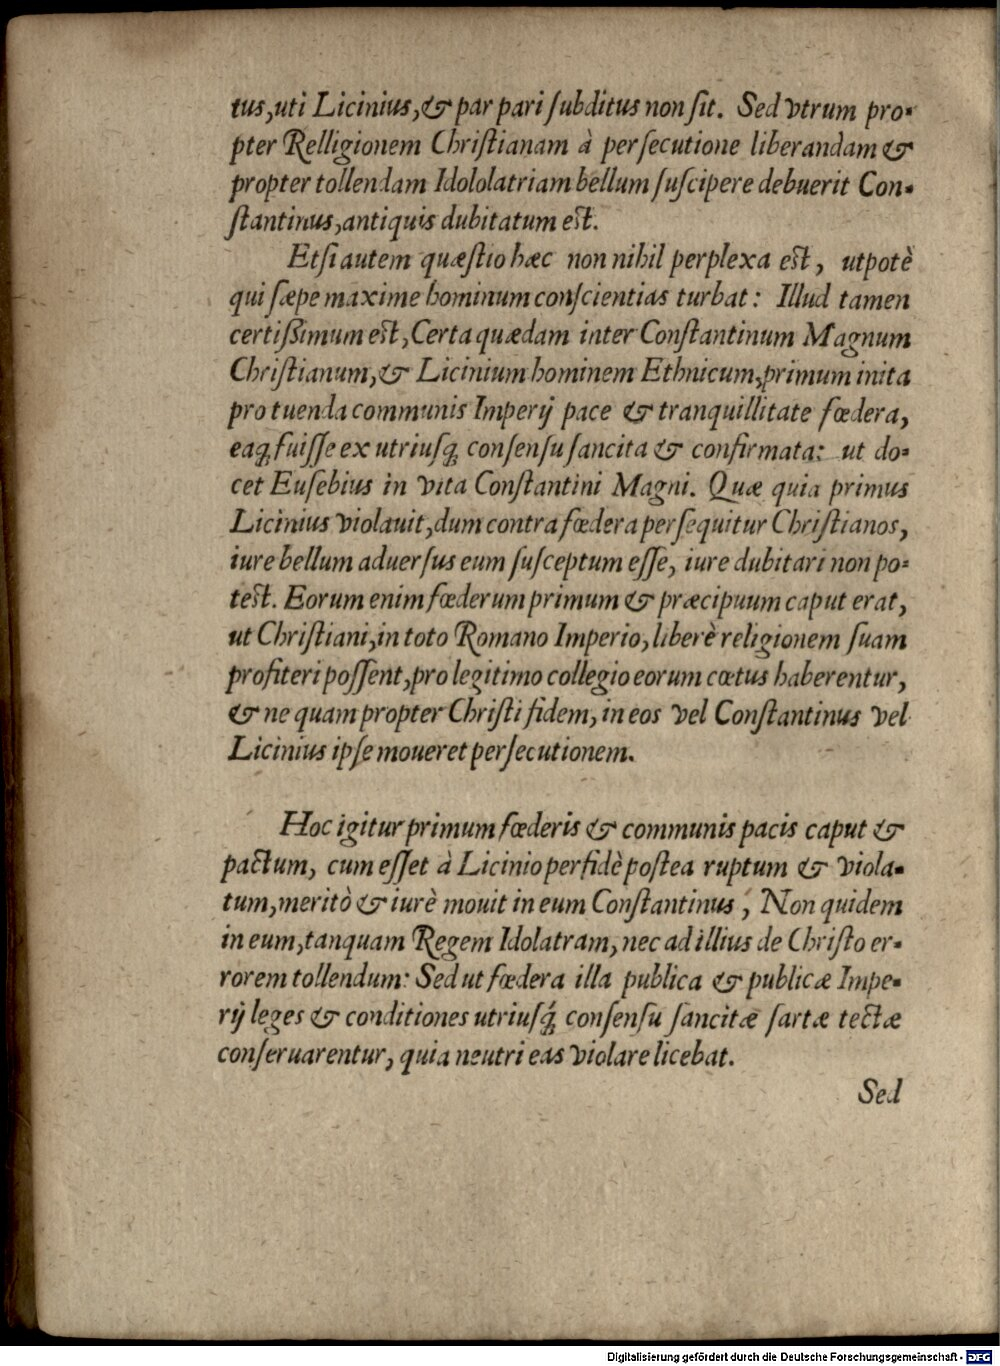 tus, uti Licinius, & par pari ſubditus non ſit. Sed vtrum pro-
pter Relligionem Chriſtianam à perſecutione liberandam &
propter tollendam Idololatriam bellum ſuſcipere debuerit Con-
ſtantinus, antiquis dubitatum eſt.
Etſi autem quæſtio hæc non nihil perplexa eſt, utpotè
qui ſæpe maxime hominum conſcientias turbat: Illud tamen
certißimum eſt, Certa quædam inter Conſtantinum Magnum
Chriſtianum, & Licinium hominem Ethnicum, primum inita
pro tuenda communis Imperij pace & tranquillitate fœdera,
eaq; fuiſſe ex utriuſq; conſenſu ſancita & confirmata: ut do-
cet Euſebius in vita Conſtantini Magni. Quæ quia primus
Licinius violauit, dum contra fœdera perſequitur Chriſtianos,
iure bellum aduerſus eum ſuſceptum eſſe, iure dubitari non po-
teſt. Eorum enim fœderum primum & præcipuum caput erat,
ut Chriſtiani, in toto Romano Imperio, liberè religionem ſuam
profiteri poſſent, pro legitimo collegio eorum cœtus haberentur,
& ne quam propter Chriſti fidem, in eos vel Conſtantinus vel
Licinius ipſe moueret perſecutionem.
Hoc igitur primum fœderis & communis pacis caput &
pactum, cum eſſet à Licinio perfidè poſtea ruptum & viola-
tum, meritò & iurè mouit in eum Conſtantinus, Non quidem
in eum, tanquam Regem Idolatram, nec ad illius de Chriſto er-
rorem tollendum: Sed ut fœdera illa publica & publicæ Impe-
rij leges & conditiones utriuſq́; conſenſu ſancitæ ſartæ tectæ
conſeruarentur, quia neutri eas violare licebat.
Sed
Digitalisierung gefördert durch die Deutsche Forschungsgemeinschaft - DFG